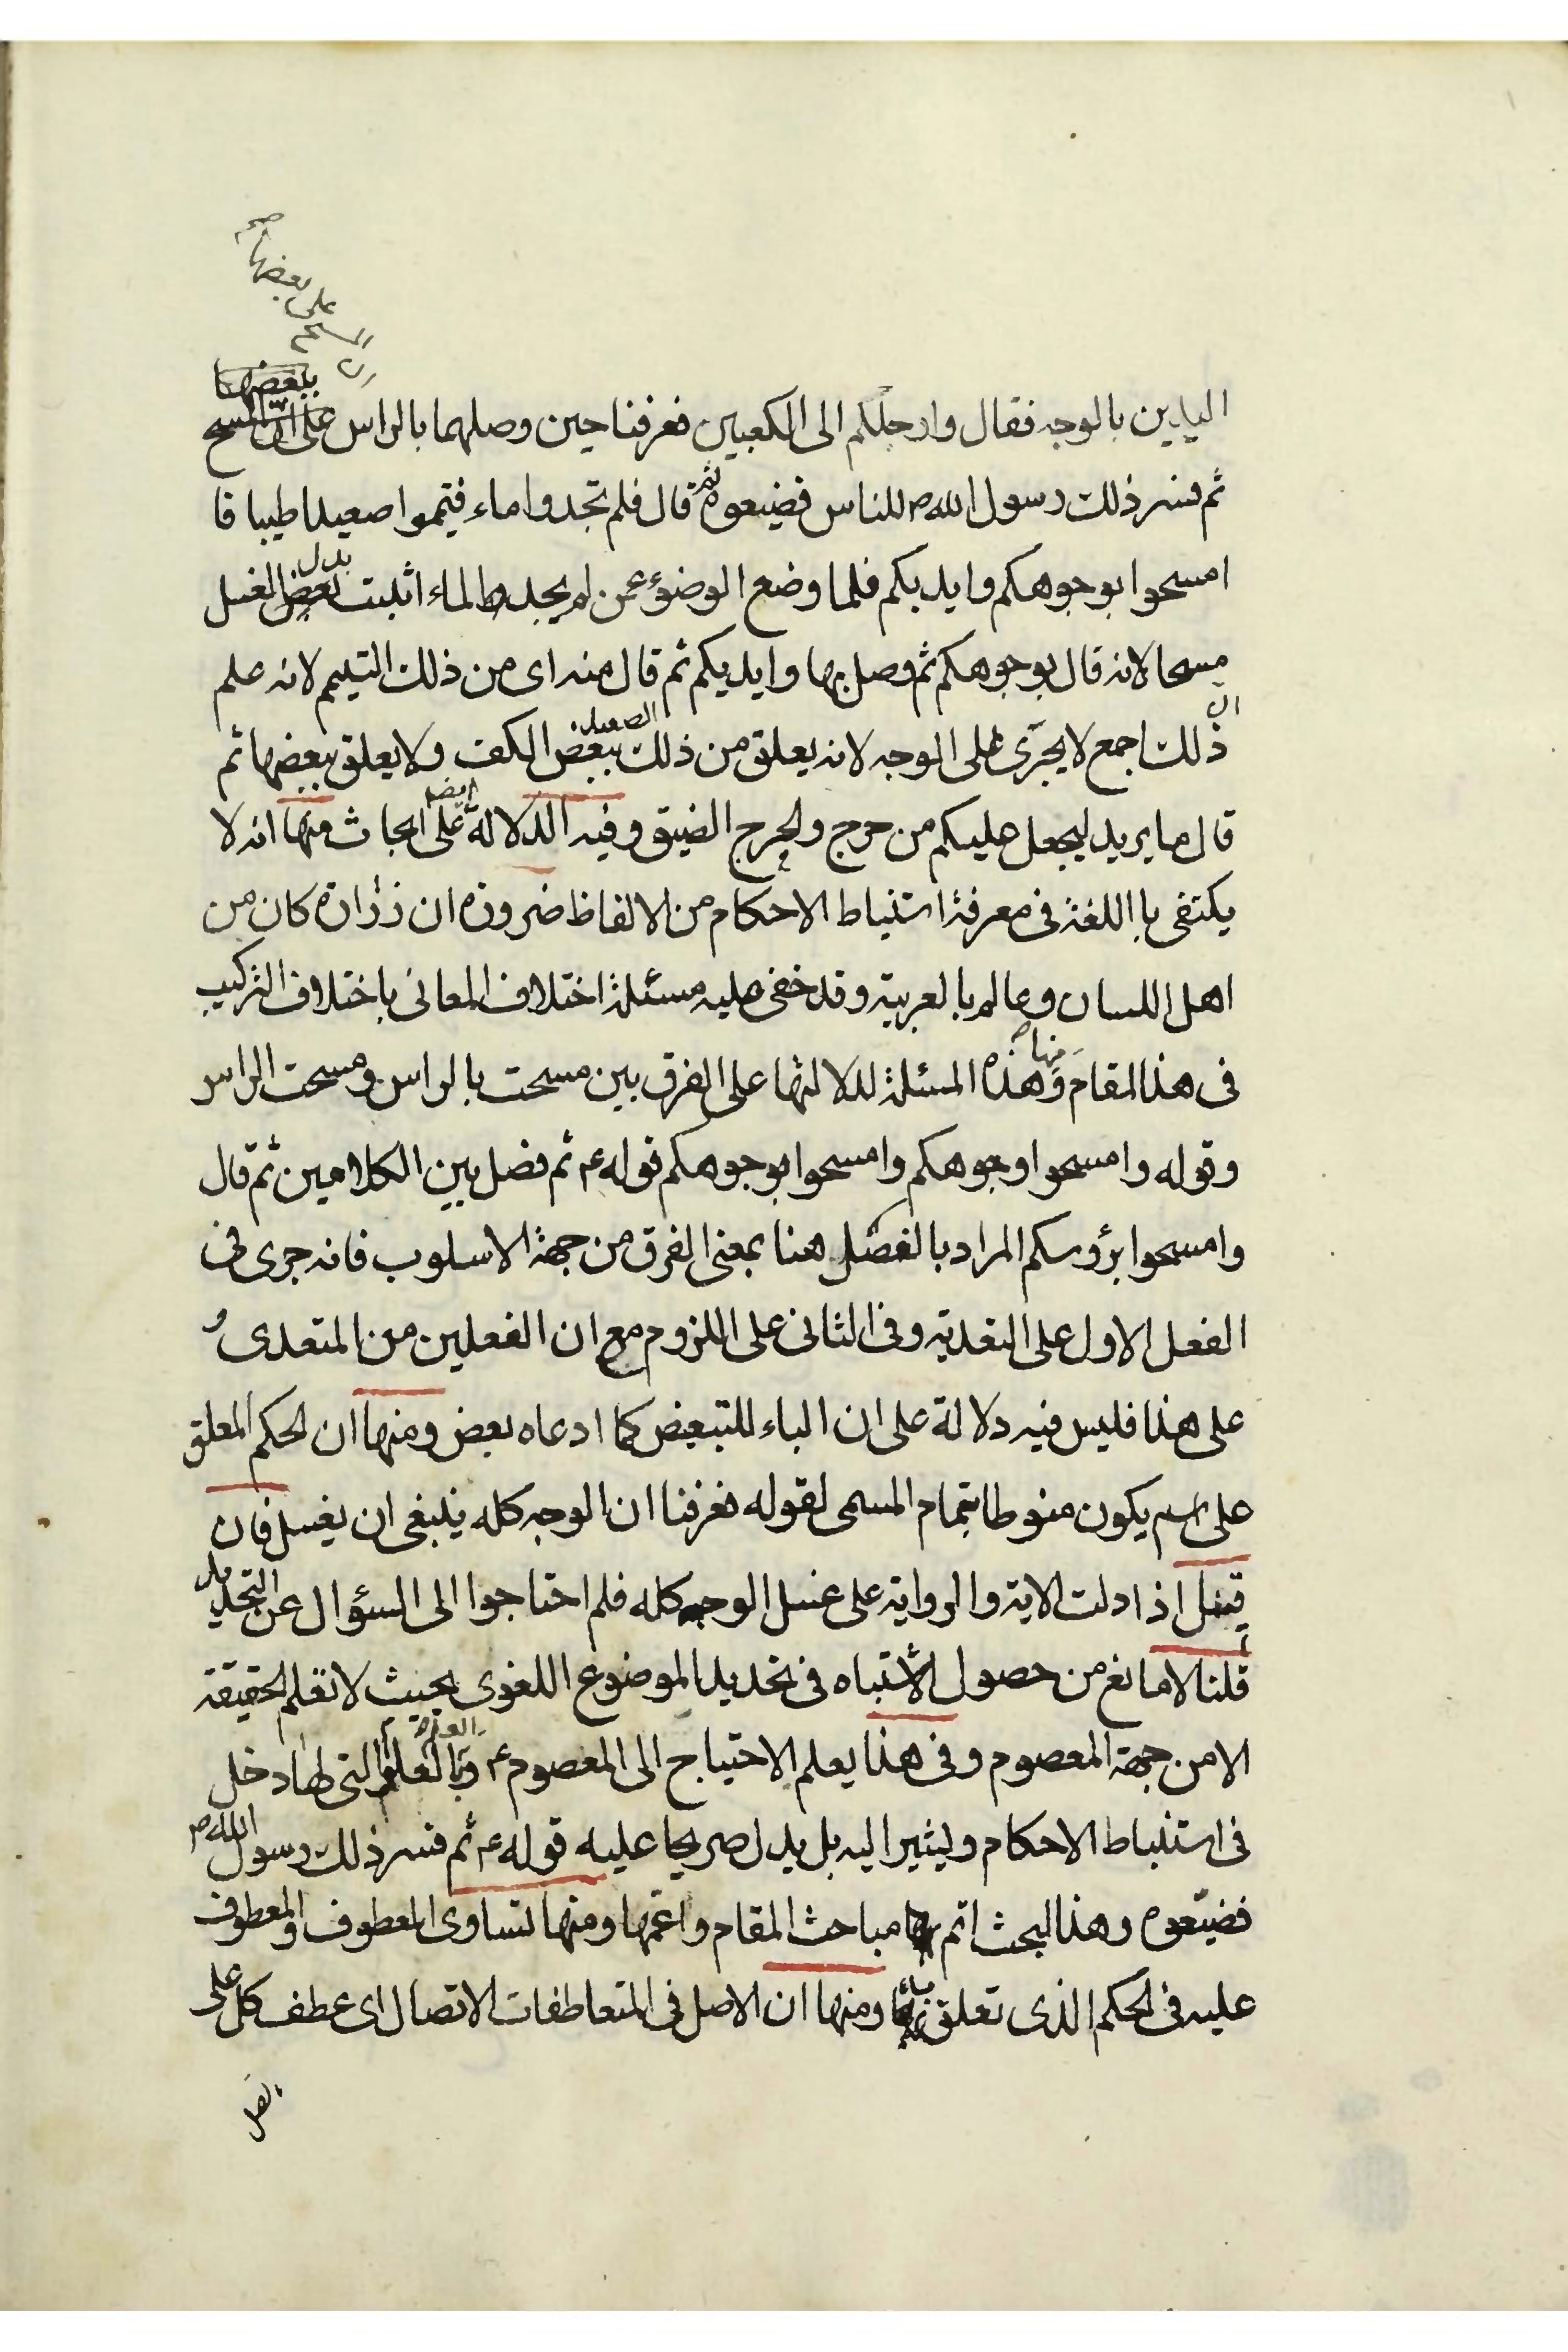 ان المسح على بعضها صح
ببعضها
اليدين بالوجه فقال وارجلكم الى الكعبين فعرفنا حين وصلهما بالراس على ان المسح
ثم فسر ذلك رسول الله ص للناس فضيعوه ثم قال فلم تجدوا ماء فتيمموا صعيدا طيبا فا
امسحوا بوجوهكم وايديكم فلما وضع الوضوء عمن لم يجد الماء اثبت بدل بعض الغسل
مسحا لانه قال بوجوهكم ثم وصل بها وايديكم ثم قال منه اى من ذلك التيمم لانه علم
ان ذلك اجمع لا يجرى على الوجه لانه يعلق من ذلك الصعيد ببعض الكف ولا يعلق ببعضها ثم
قال ما يريد ليجعل عليكم من حرج والحرج الضيق وفيه الدلالة ايضا على ابحاث منها انه لا
يكتفى با اللغة فى معرفة استنباط الاحكام من الالفاظ ضرورة ان زرارة كان من
اهل اللسان وعالم بالعربية وقد خفى عليه مسئلة اختلاف المعانى باختلاف التركيب
فى هذا المقام ومنها هذه المسئلة لدلالتها على الفرق بين مسحت بالراس ومسحت الراس
وقوله وامسحوا وجوهكم وامسحوا بوجوهكم قوله ع ثم فصل بين الكلامين ثم قال
وامسحوا برؤسكم المراد بالفصل هنا بمعنى الفرق من جهة الاسلوب فانه جرى فى
الفعل الاول على التعدية وفى الثانى على اللزوم مع ان الفعلين من المتعدى و
على هذا فليس فيه دلالة على ان الباء للتبعيض كما ادعاه بعض ومنها ان الحكم المعلق
على اسم يكون منوطا بتمام المسمى لقوله فعرفنا ان الوجه كله ينبغى ان يغسل فان
قيل اذا دلت الاية والرواية على غسل الوجه كله فلم احتاجوا الى السؤال عن التحديد
قلنا لا مانع من حصول الاشتباه فى تحديد الموضوع اللغوى بحيث لا تعلم الحقيقة
الا من جهة المعصوم وفى هذا يعلم الاحتياج الى المعصوم ع وبالعلوم التى لها دخل
فى استنباط الاحكام ويشير اليه بل يدل صريحا عليه قوله ع ثم فسر ذلك رسول الله ص
فضيعوه وهذا البحث اتم مباحث المقام واعمها ومنها تساوى المعطوف والمعطوف
عليه فى الحكم الذى تعلق بها ومنها ان الاصل فى المتعاطفات الاتصال اى عطف كل على